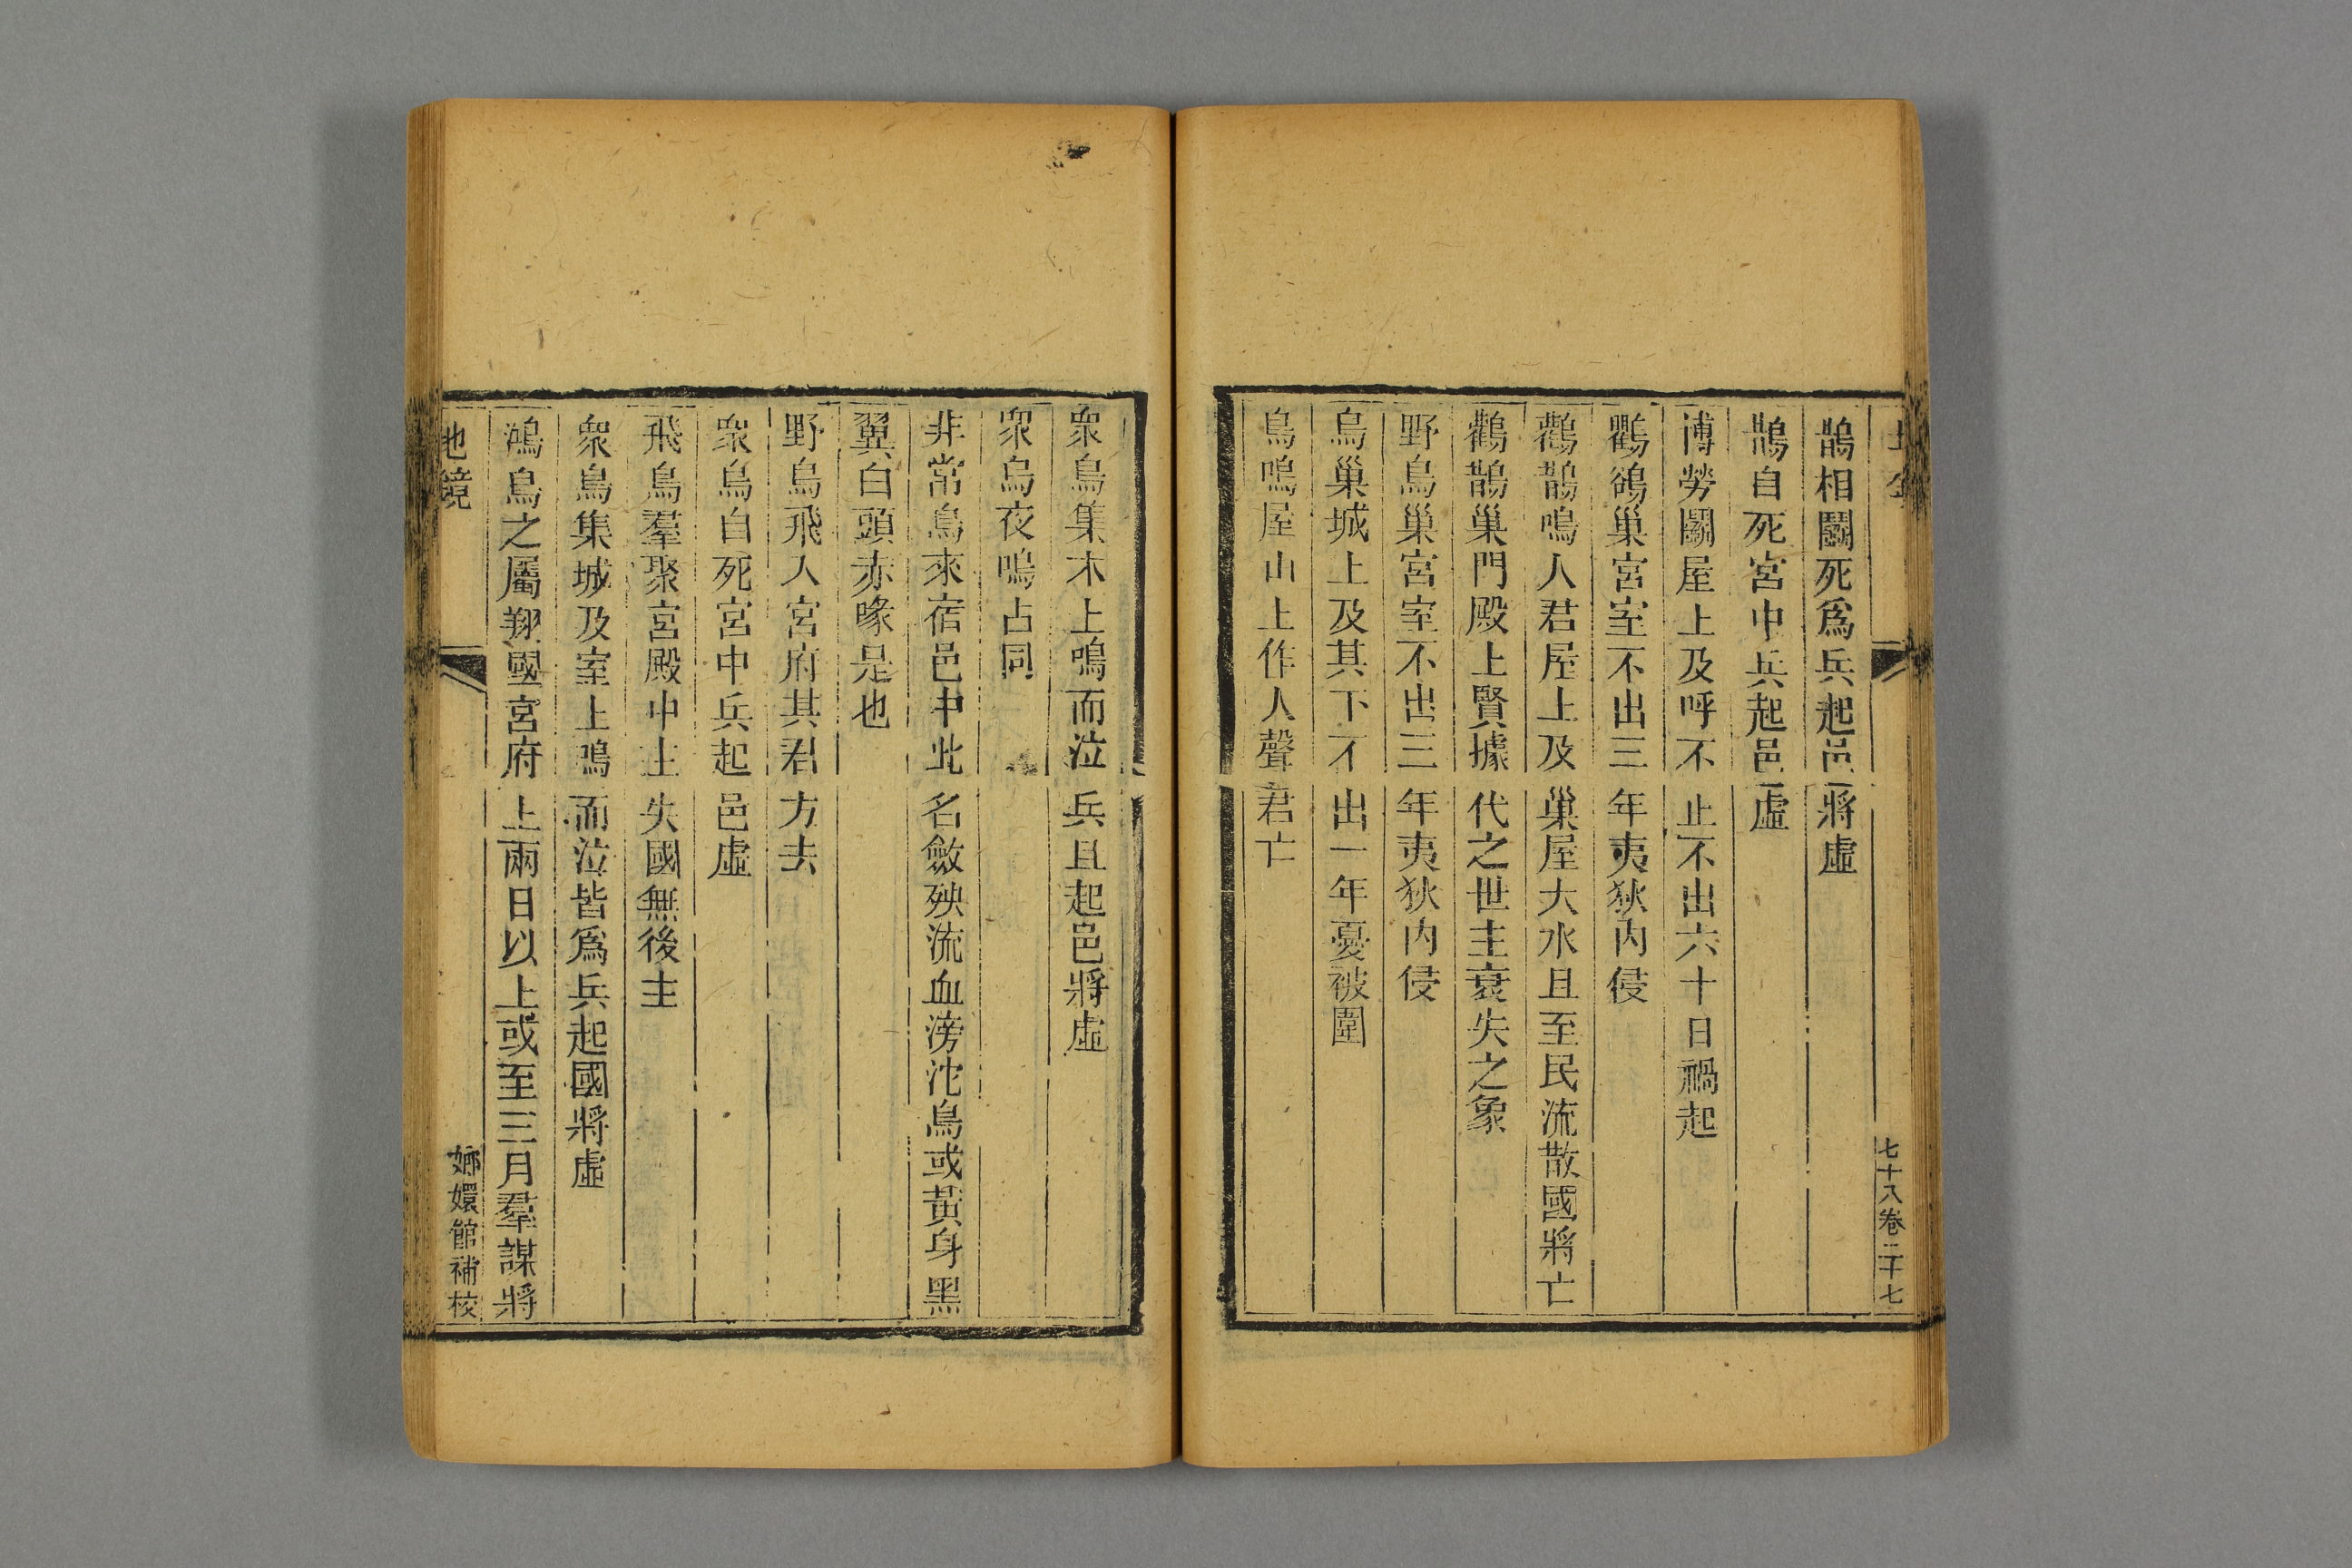 七十八卷二十七
鵲相鬭死爲兵起邑將虛
鵲自死宮中兵起邑虛
博勞鬭屋上及呼不止不出六十日禍起
鸜鵒巢宮室不出三年夷狄內侵
鸛鵲鳴人君屋上及巢屋大水且至民流散國將亡
鸛鵲巢門殿上賢據代之世主衰失之象
野鳥巢宮室不出三年夷狄內侵
烏巢城上及其下不出一年憂被圍
烏鳴屋山上作人聲君亡
衆鳥集木上鳴而泣兵且起邑將虛
眾烏夜鳴占同
非常鳥來宿邑中此名斂殃流血滂沱鳥或黃身黑
翼白頭赤喙是也
野鳥飛入宮府其君方去
衆烏自死宮中兵起邑虛
飛鳥羣聚宮殿中主失國無後主
衆鳥集城及室上鳴而泣皆爲兵起國將虛
鴻鳥之屬翔國宮府上兩日以上或至三月羣謀將
地鏡
嫏嬛館補校